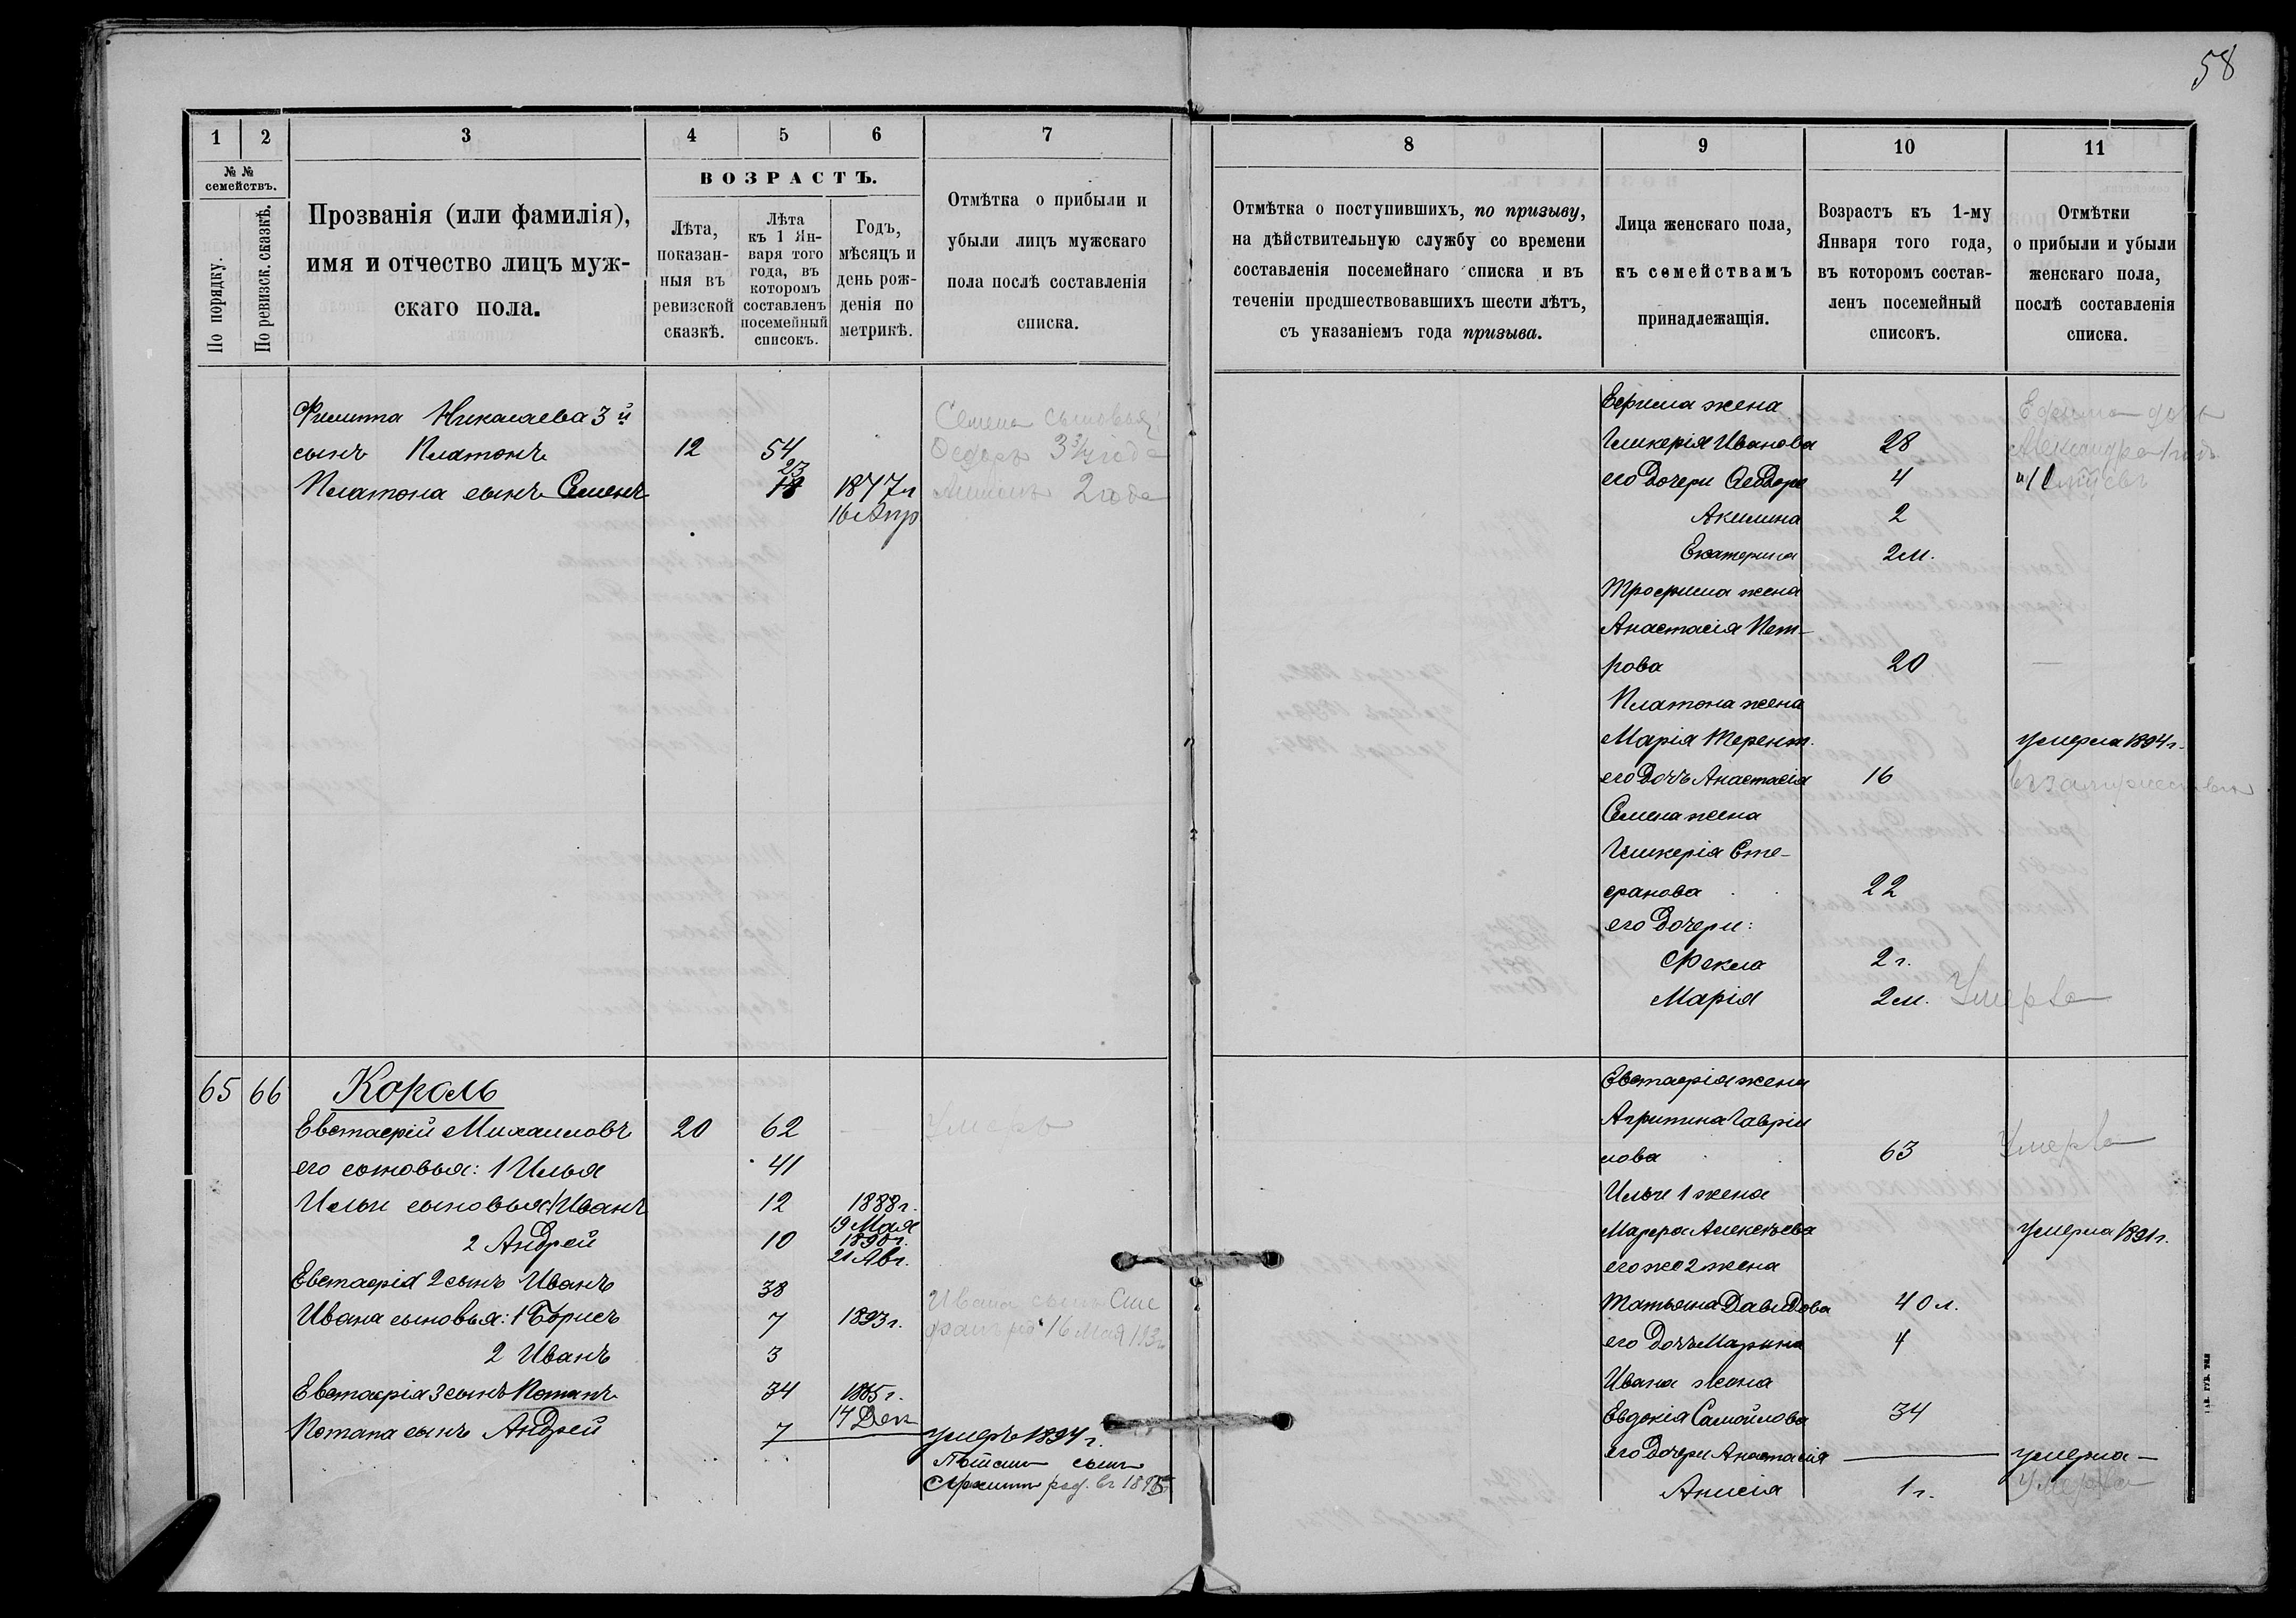 58
1 2 3 4 5 6 7
№ №
семействъ.
По порядку.
По ревизск. сказкѣ.
Прозванія (или фамилія),
имя и отчество лицъ муж-
скаго пола.
ВОЗРАСТЪ.
Лѣта,
показан-
ныя въ
ревизской
сказкѣ.
Лѣта
къ 1 Ян-
варя того
года, въ
которомъ
составленъ
посемейный
списокъ.
Годъ,
мѣсяцъ и
день рож-
денія по
метрикѣ.
Отмѣтка о прибыли и
убыли лицъ мужскаго
пола послѣ составленія
списка.
Филиппа Николаева 3й
сынъ Платонъ 12 54
Платона сынъ Семенъ 23 18 1877г
16 Апр
Семена сыновья:
Федоръ 3½ года
2 года
65 66 Король
Евстафій Михаиловъ 20 62 Умеръ
его сыновья: 1 Илья 41
Ильи сыновья 1 Иванъ 12 1888г.
19 Мая
2 Андрей 10 1890г.
21 Авг.
Евстафія 2 сынъ Иванъ 38
Ивана сыновья: 1 Борисъ 7 1893г.
2 Иванъ 3
Ивана сынъ Сте
фанъ 16 Мая
Евстафія 3 сынъ Потапъ 34 1865г.
14 Дек
Потапа сынъ Андрей 7 умеръ 1894г.
Потапа сынъ
род. въ 1895
8 9 10 11
Отмѣтка о поступившихъ, по призыву,
на дѣйствительную службу со времени
составленія посемейнаго списка и въ
теченіи предшествовавшихъ шести лѣтъ,
съ указаніемъ года призыва.
Лица женскаго пола,
къ семействамъ
принадлежащія.
Возрастъ къ 1-му
Января того года,
въ которомъ состав-
ленъ посемейный
списокъ.
Отмѣтки
о прибыли и убыли
женскаго пола,
послѣ составленія
списка.
Ефима жена
Гликерія Иванова 28
его дочери Феодора 4
Акилина 2
Екатерина 2 м.
Ефима дочь
Александра 1 годъ
Трофима жена
Анастасія Пет-
рова 20
Платона жена
Марія Терент. умерла 1894г.
его дочь Анастасія 16 въ замужествѣ
Семена жена
Гликерія Сте-
фанова 22
его дочери:
Фекла 2 г.
Марія 2 м. Умерла
Евстафія жена
Агрипина Гаврiи
лова 63 Умерла
Ильи 1 жена
Марфа Алексѣева умерла 1891г.
его же 2 жена
Татьяна Давидова 40 л.
его дочь Марина 4
Ивана жена
Евдокія Самойлова 34
его дочери Анастасія умерла
Анисія 1 г. Умерла